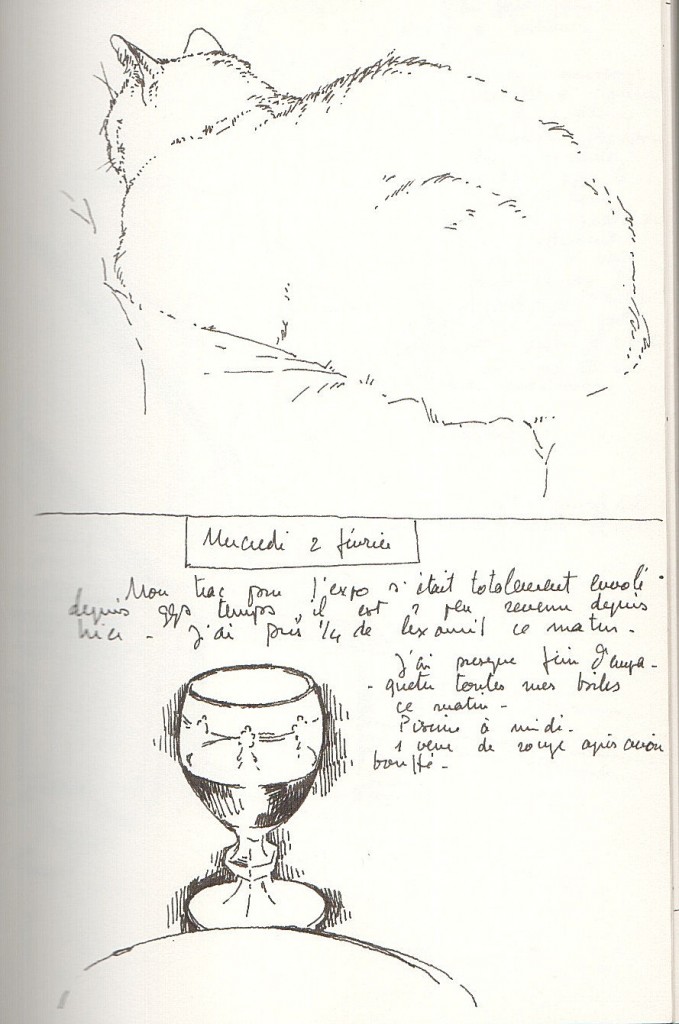 Mercredi 2 février
Mon trac pour l'expo s'était totalement envolé
depuis qqs temps, il est 1 peu revenu depuis
hier - J'ai pris 1/4 de lexomil ce matin.
J'ai presque fini d'empa-
-queter toutes mes toiles
ce matin -
Piscine à midi.
1 verre de rouge après avoir
bouffé -